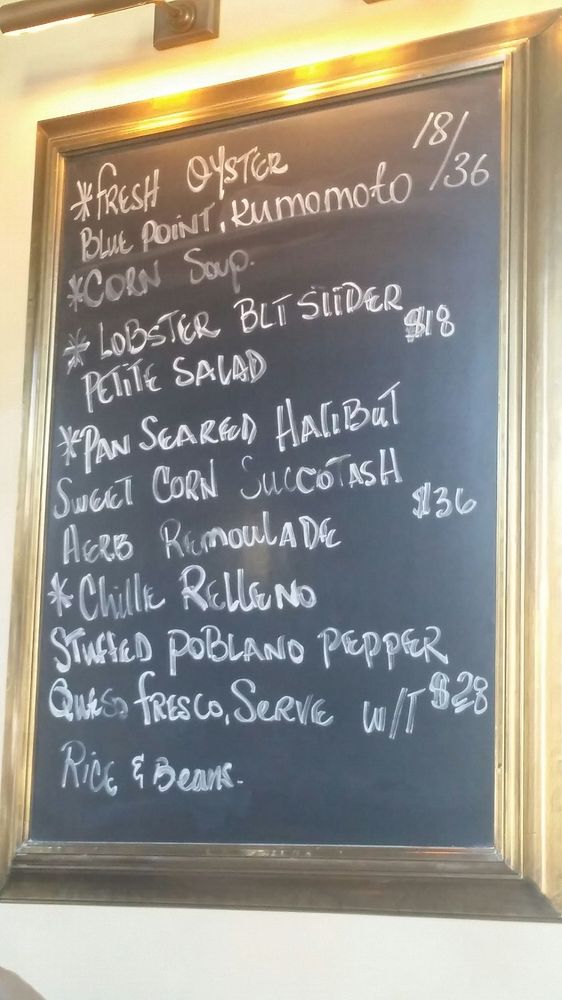 *FRESH OYSTER 18/36
BLUE POINT, KUMOMOTO
*CORN SOUP.
* LOBSTER BLT SLIDER
PETITE SALAD $18
*PAN SEARED HALIBUT
SWEET CORN SUCCOTASH
HERB REMOULADE $36
*CHILLE RELLENO
STUFFED POBLANO PEPPER
QUESO FRESCO, SERVE W/T $28
RICE & Beans.